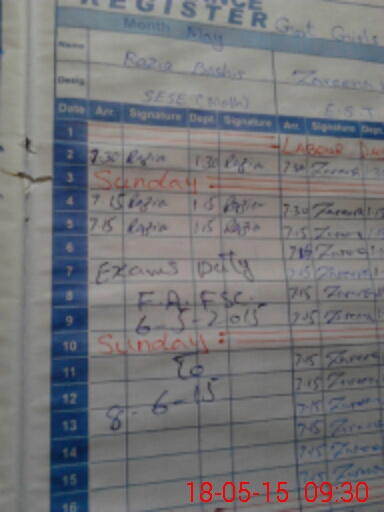 REGISTER Govt Girls
Month May
Name Razia Bashir Zareena
Desig. SESE (Math) E.S.T
Date Arr. Signature Dept. Signature Arr. Signature Dept.
1 LABOUR Day
2 7.30 Razia 1.30 Razia 7.30 Zareena
3 Sunday :
4 7.15 Razia 1.15 Razia 7.30 Zareena
5 7.15 Razia 1.15 Razia 7.15 Zareena
6 7.15 Zareena
7 Exams Duty 7.15 Zareena
8 F.A. FSC. 7.15 Zareena
9 6-5-2015 7.15 Zareena
10 Sunday :
11 To 7.15 Zareena
12 7.15 Zareena
13 8-6-15 7.15 Zareena
14 7.15 Zareena
15 7.15 Zareena
16
18-05-15 09:30